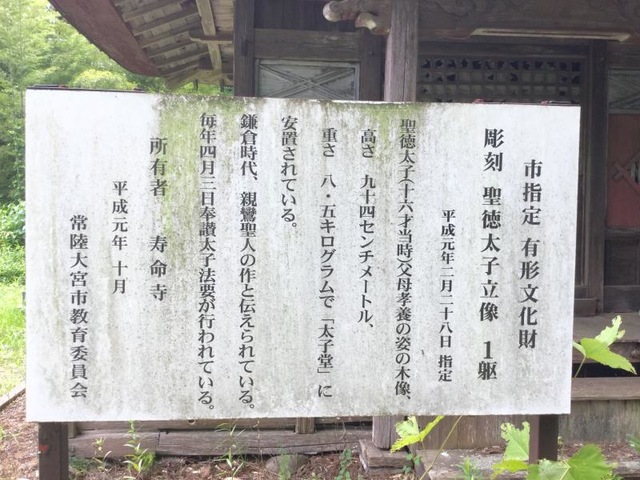 市指定 有形文化財
彫刻 聖徳太子立像 1躯
平成元年二月二十八日 指定
聖徳太子(十六才当時)父母孝養の姿の木像、
高さ 九十四センチメートル、
重さ 八・五キログラムで「太子堂」に
安置されている。
鎌倉時代、親鸞聖人の作と伝えられている。
毎年四月二日奉讃太子法要が行われている。
所有者 寿命寺
平成元年 十月
常陸大宮市教育委員会